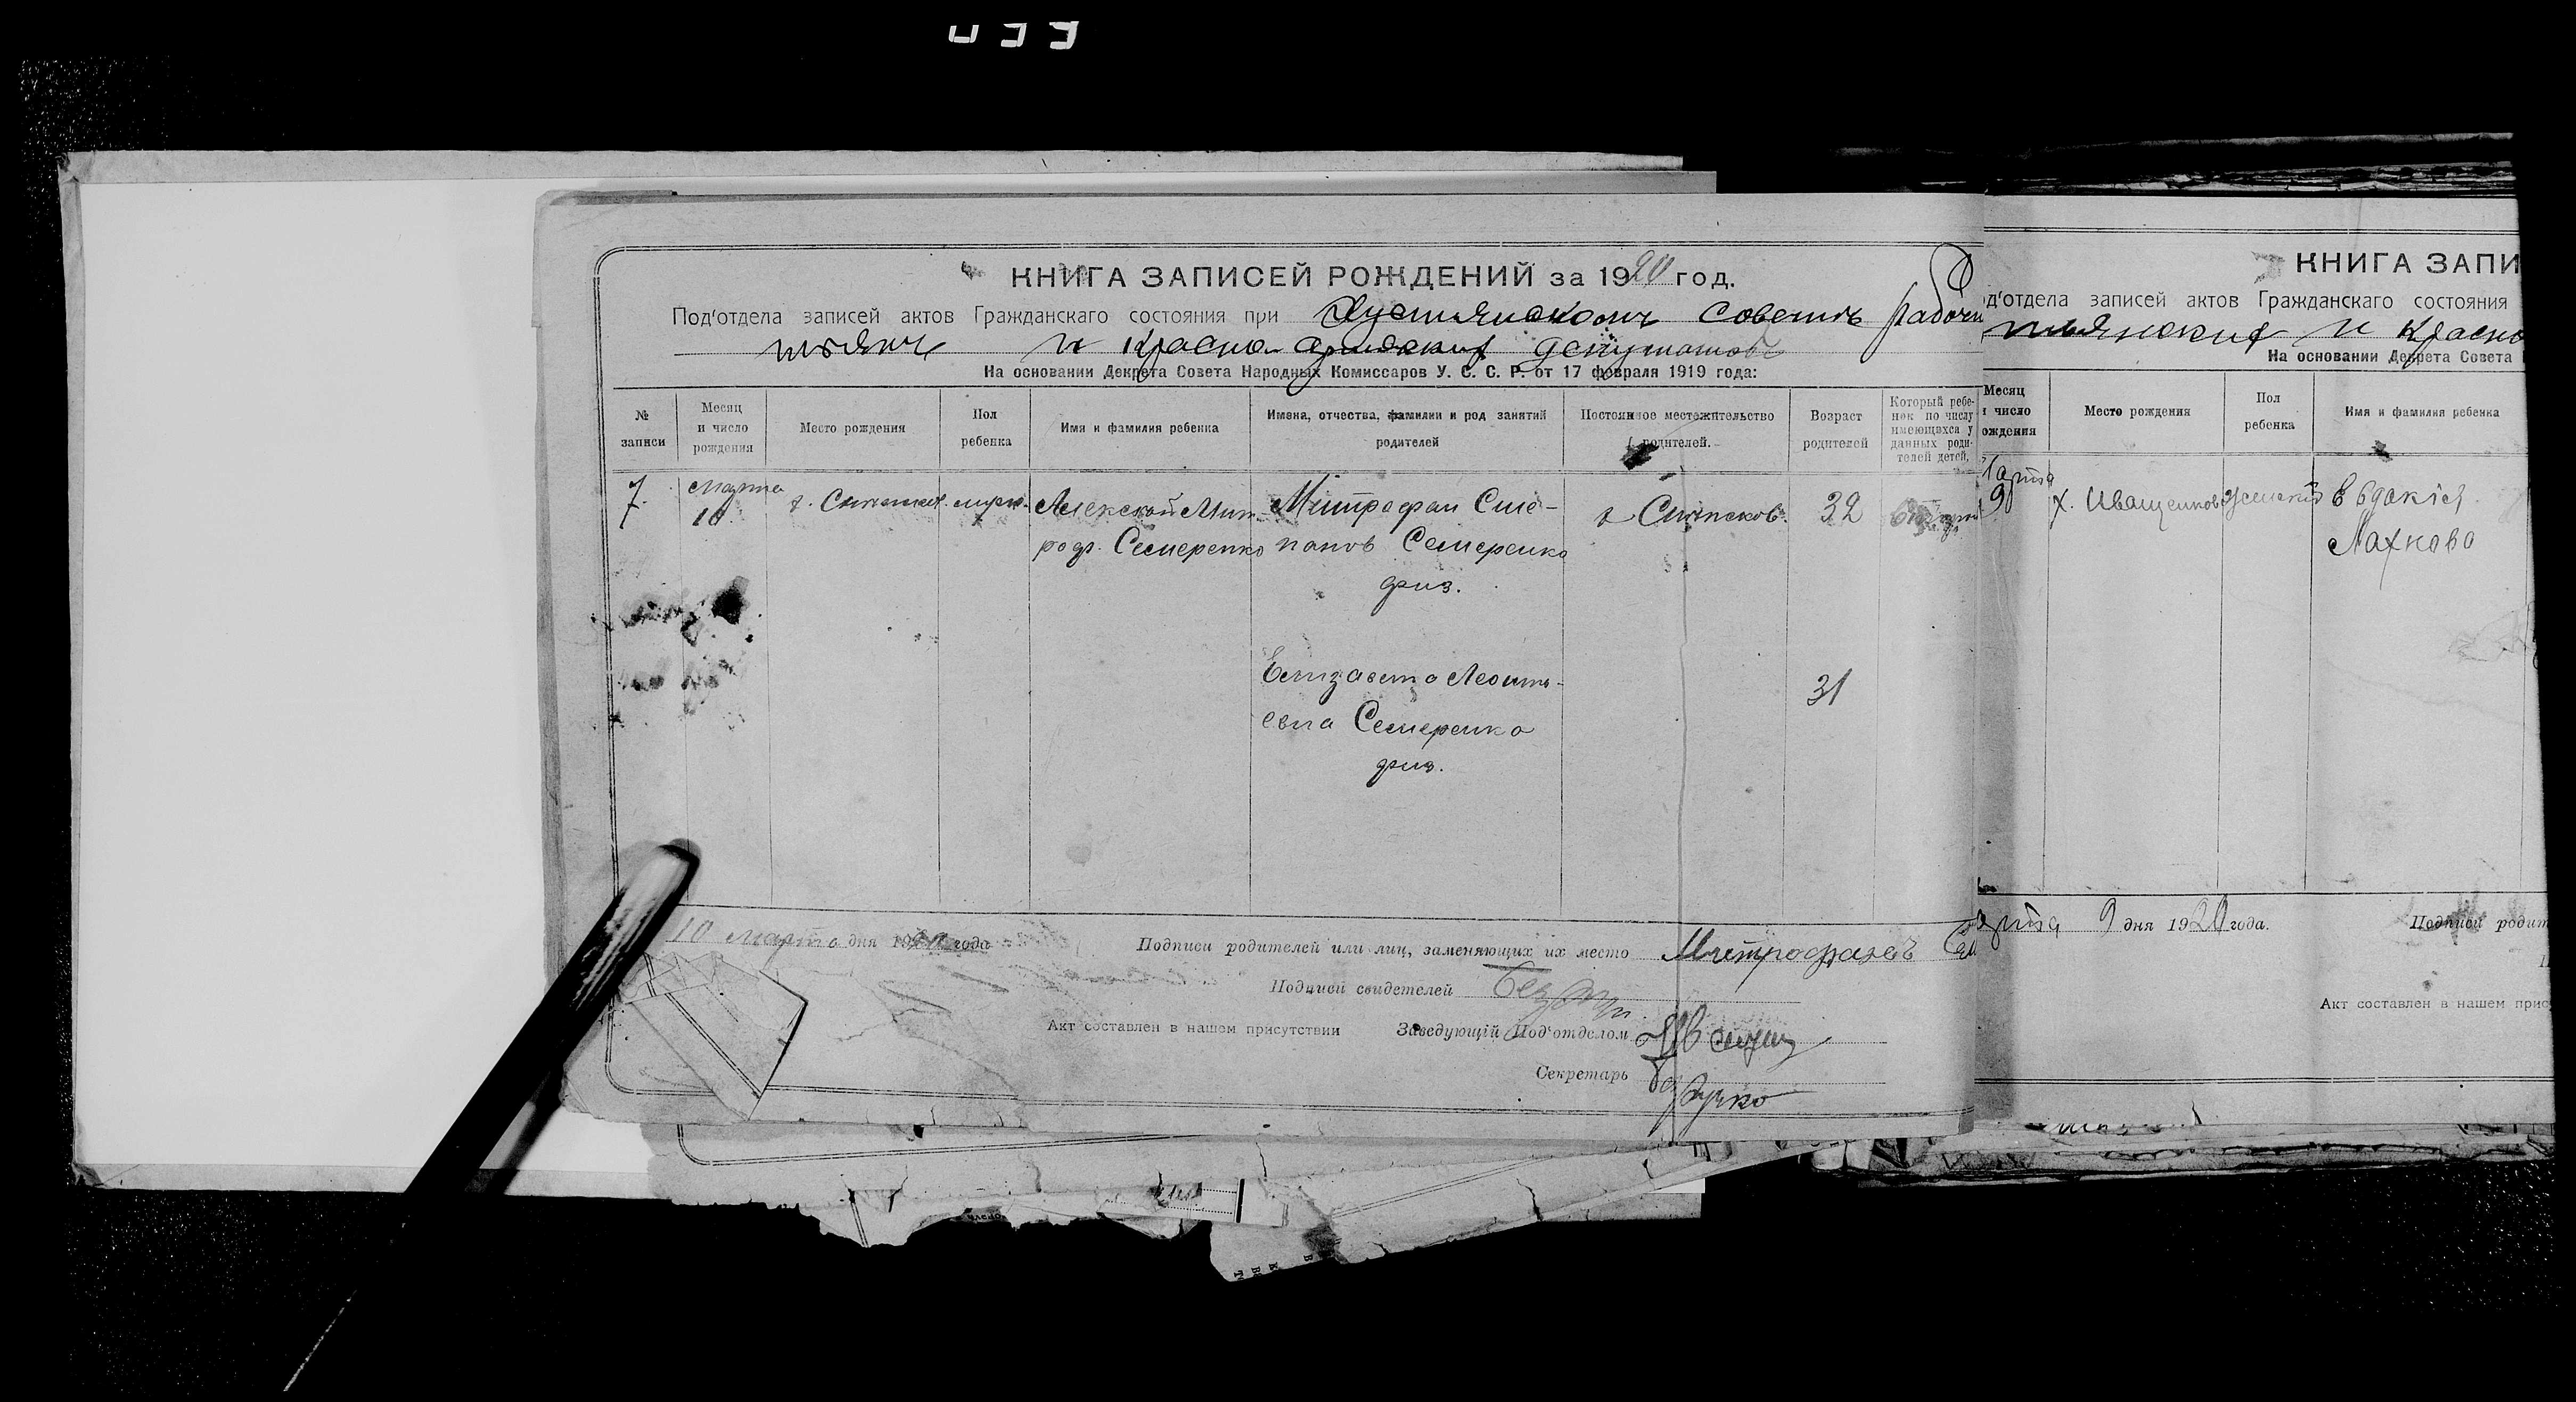 КНИГА ЗАПИСЕЙ РОЖДЕНИЙ за 1920 год.
Под'отдела записей актов Гражданскаго состояния при Советъ рабочи
и Красно депутатовъ
На основании Декрета Совета Народных Комиссаров У. С. С. Р. от 17 февраля 1919 года:
№ записи
Месяц и число рождения
Место рождения
Пол ребенка
Имя и фамилия ребенка
Имена, отчества, фамилии и род занятий родителей
Постоянное местежительство родителей.
Возраст родителей
Который ребенок по числу имеющихся у данных родителей детей.
7.
Марта
10
Алексей Мит-
роф. Семеренко
Митрофан Сте-
панов Семеренко
32
Елизавета Леонть-
евна Семеренко
31
10 марта дня 1920 года
Подписи родителей или лиц, заменяющих их место Митрофанъ
Подписи свидетелей
Акт составлен в нашем присутствии Заведующій Под'отделом
Секретарь
КНИГА ЗАПИ
од'отдела записей актов Гражданскаго состояния
тьянских и Красно
На основании Декрета Совета
Месяц
и число
ождения
Место рождения
Пол ребенка
Имя и фамилия ребенка
арта
9
х. Иващенков
женскій
Евдокія
Лахново
арта 9 дня 1920 года.
Подписи родит
Акт составлен в нашем прис